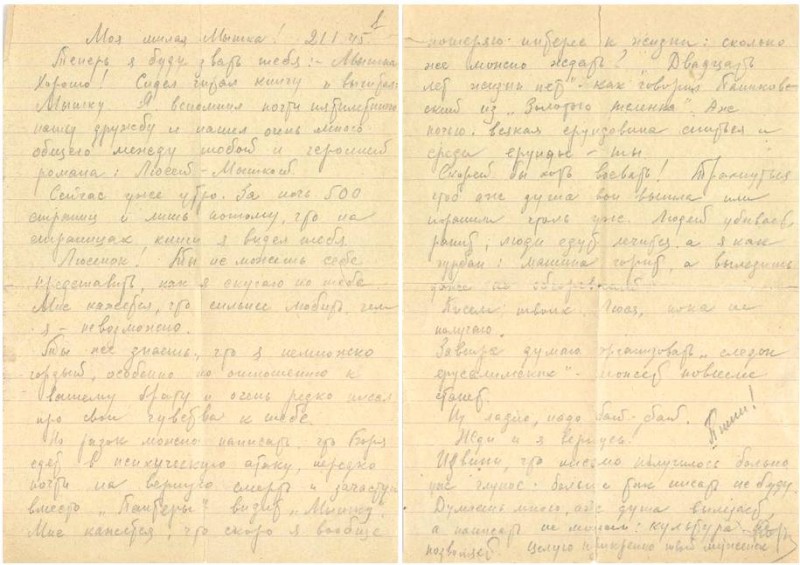 1
Моя милая Мышка! 21 1 45.
Теперь я буду звать тебя: – Мышка
Хорошо! Сидел читал книгу и
Мышку. Я вспомнил почти пятилетнюю
нашу дружбу и нашел очень много
общего между тобой и героиней
романа: Люсей – Мышкой
Сейчас уже утро. За ночь 500
страниц и лишь потому, что на
страницах книги я видел тебя.
Люсенок! Ты не можешь себе
представить, как я скучаю по тебе
Мне кажется, что сильнее любить, чем
я – невозможно.
Ты же знаешь, что я немножко
гордый, особенно по отношению к
вашему брату и очень редко писал
про свои чувства к тебе.
Но разок можно написать, что Боря
едет в психическую атаку, нередко
почти на верную смерть и зачастую
вместо „Пантеры" видит „Мышку".
Мне кажется, что скоро я вообще
потеряю интерес к жизни: сколько
же можно ждать? Двадцать
лет жизни нет" – как говорил Паниковский
из „Золотого теленка". Аж
ночью всякая ерундовина сниться и
среди ерунды – ты
Скорей бы хоть воевать! Трахнуться
чтоб аж душа вон вышла или
уж. Людей убивает,
ранит; люди едут лечится, а я как
чурбан: машина горит, а вылезишь
даже не
Писем твоих, Люся, пока не
получаю.
Завтра думаю организовать „слезы
ерусалимские" – может повеселее
станет.
Ну ладно, надо бай-бай.
Жди и я вернусь! Пиши!
Извини, что письмо получилось больно
уж глупое: больше так писать не буду.
Думаешь много, аж душа
а написать не можем: культура не
позволяет. Целую крепко твой